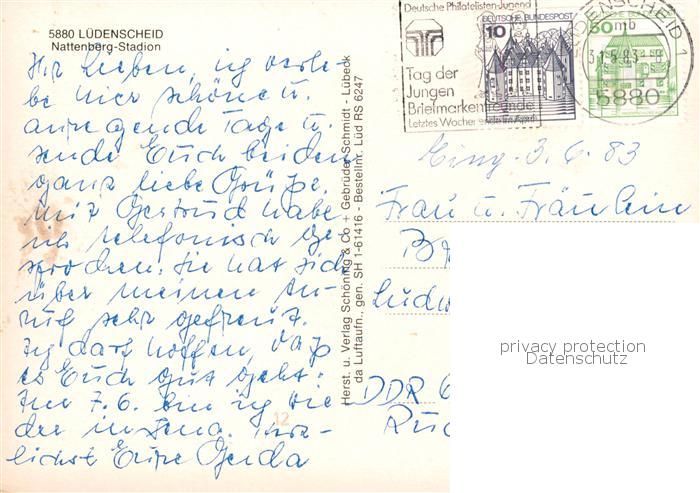 5880 LÜDENSCHEID
Nattenberg-Stadion
Ihr Lieben, ich verle-
be hier schöne u.
anregende Tage u.
sende Euch beiden
ganz liebe Grüße.
Mit Gertrud habe
ich telefonisch ge-
sprochen. Sie hat sich
über meinen An-
ruf sehr gefreut.
Ich darf hoffen, daß
es Euch gut geht.
Am 7.6. bin ich wie
der in Jena. Herz-
lichst Eure Gerda
12
Herst. u. Verlag Schöning & Co + Gebrüder Schmidt - Lübeck
da Luftaufn., gen. SH 1-61416 - Bestellnr. Lüd RS 6247
Deutsche Philatelisten-Jugend
Tag der
Jungen
Briefmarkenfreunde
Letztes Wochenende im April
DEUTSCHE BUNDESPOST
10
50
LÜDENSCHEID 1
mb
31.5.83
5880
Eing. 3.6.83
Frau u. Fräulein
Ludw
DDR 6
Rud
privacy protection
Datenschutz